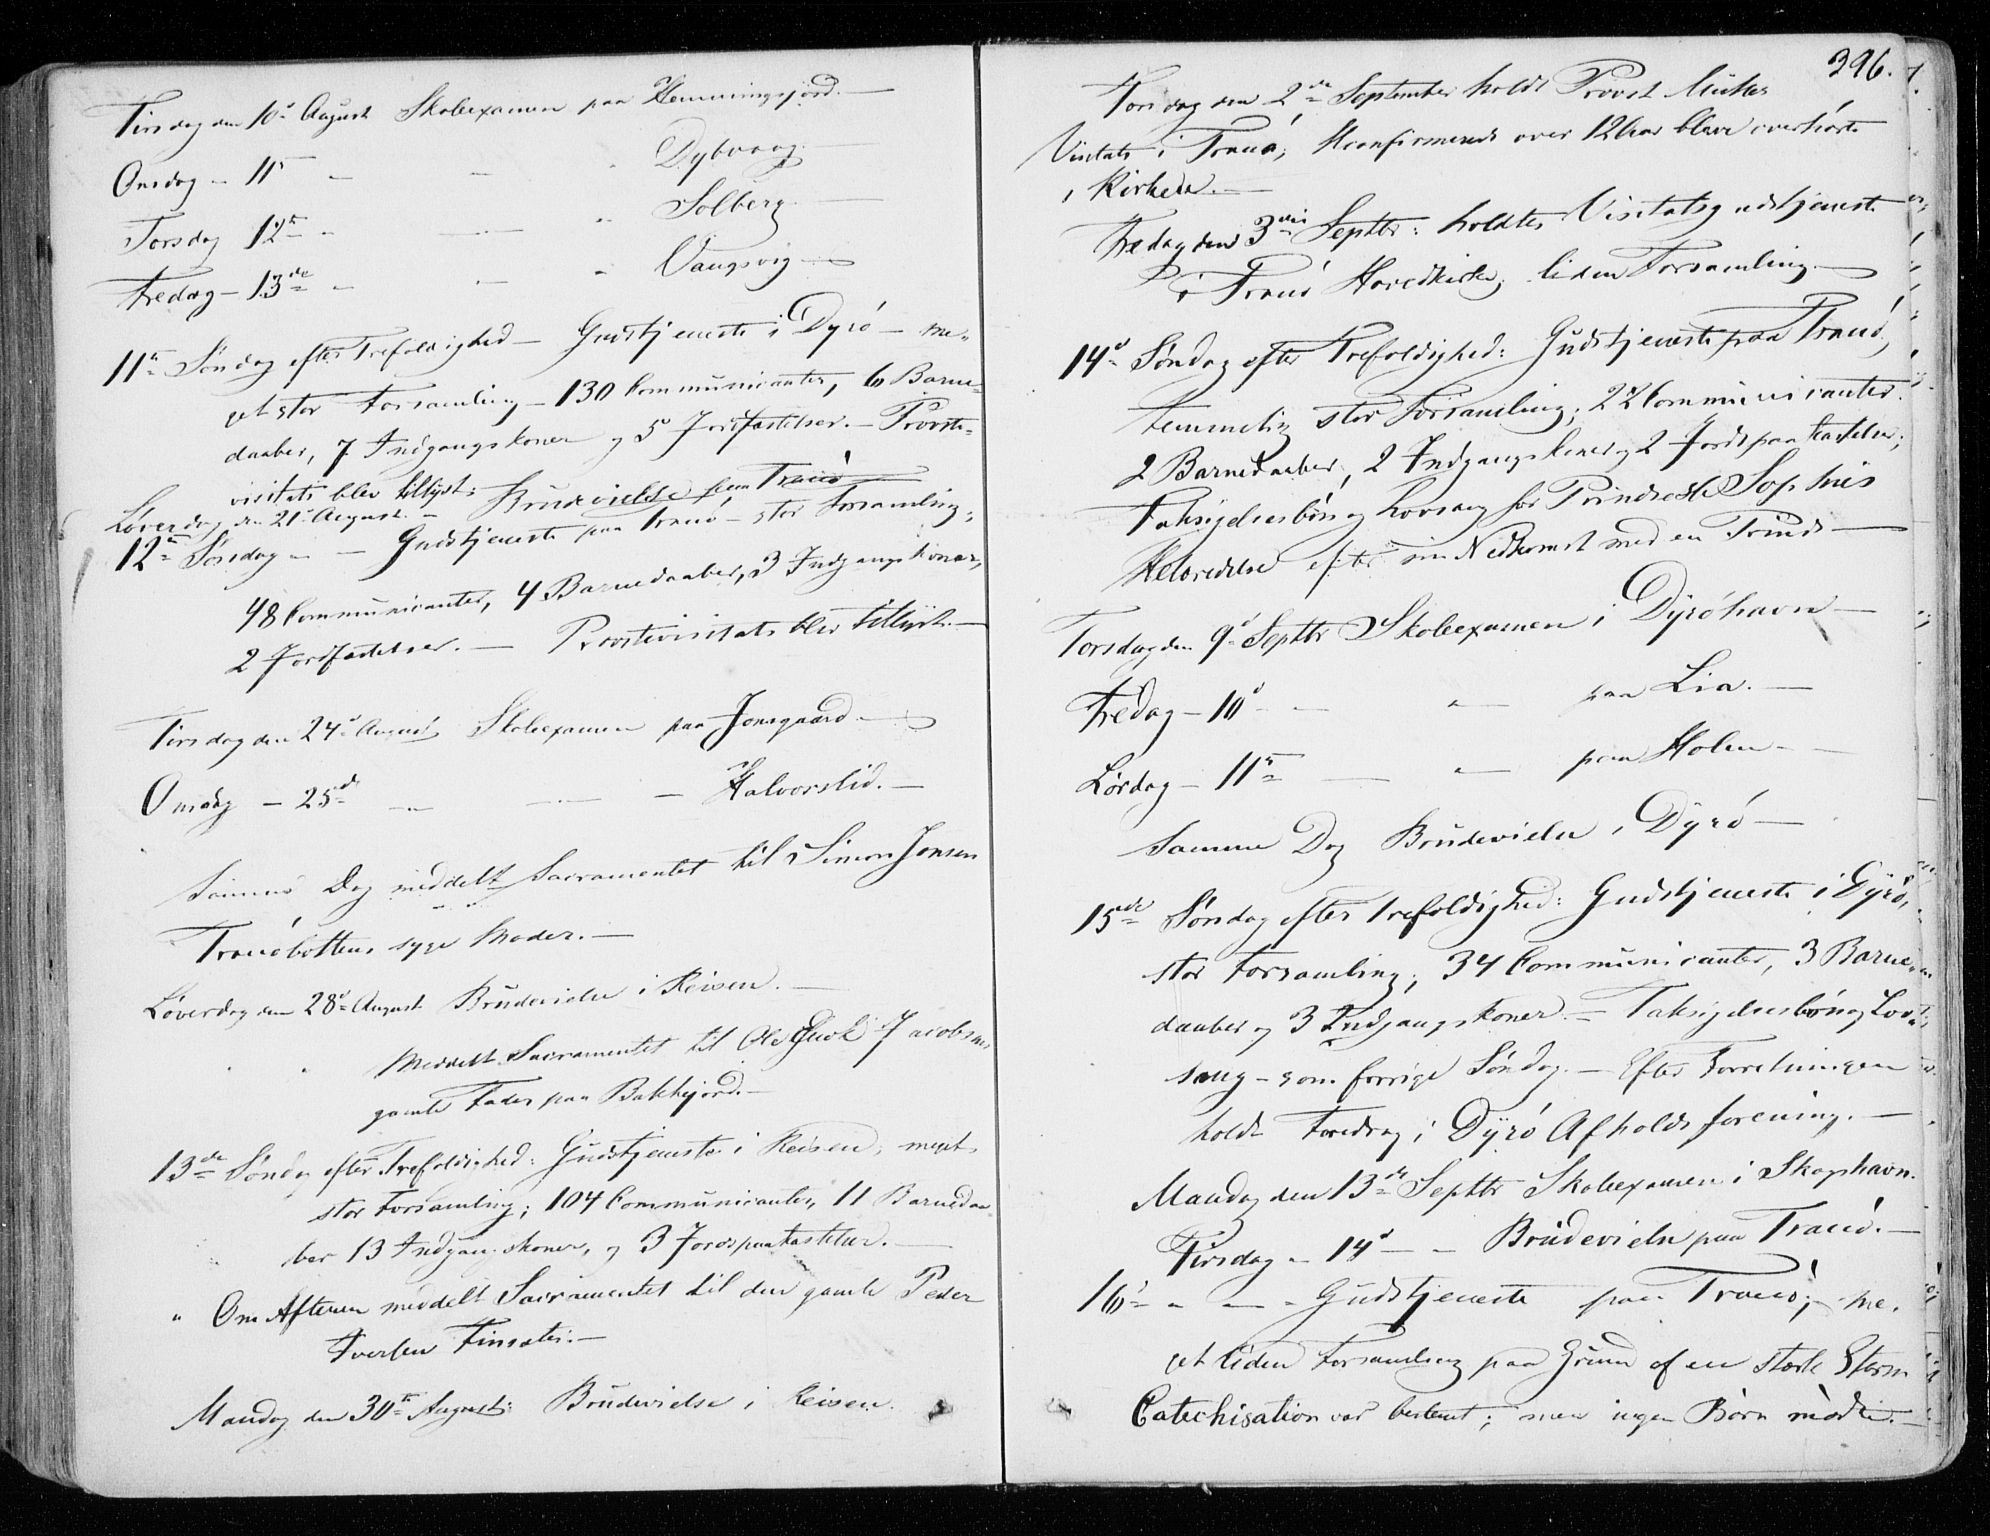 Tirsdag den 10de August Skoleexamen paa Hemmingsfjord. —
Onsdag — 11te — — " Dybvaag. —
Torsdag 12te — — " Solberg. —
Fredag — 13de — — " Vangsvig —
11te Søndag efter Trefoldighed — Gudstjeneste i Dyrö — me-
get stor Forsamling — 130 Communicanter, 6 Barne-
daaber, 7 Indgangskoner og 5 Jordfæstelser. — Provste-
visitats blev tillyst;
Løverdag den 21de August. — Brudevielse paa Tranö
12te Søndag — — Gudstjeneste paa Tranö — stor Forsamling,
48 Communicanter, 4 Barnedaaber, 3 Indgangskoner,
2 Jordfæstelser. — Provstevisitats blev tillyst. —
Tirsdag den 24de August Skoleexamen paa Jonsgaard. —
Onsdag — 25de — — — Halvorslid. —
Samme Dag meddelt Sacramentet til Simon Jensen
Tranöbottens syge Moder. —
Løverdag den 28de August Brudevielse i Reisen. —
" " Meddelt Sacramentet til Ole Jacobsens
gamle Fader paa Bakkejord. —
13de Søndag efter Trefoldighed: Gudstjeneste i Reisen, meget
stor Forsamling; 104 Communicanter, 11 Barnedaa-
ber 13 Indgangskoner, og 3 Jordspaakastelser. —
" Om Aftenen meddelt Sacramentet til den gamle Peder
Iversen Finsæter. —
Mandag den 30te August: Brudevielse i Reisen.
396.
Torsdag den 2den September holdt Provst Müller
Visitats i Tranö; Konfirmerede over 12 Aar bleve overhørte
i Kirken. —
Fredag den 3die Septbr: holdtes Visitatsgudstjeneste
i Tranö Hovedkirke; liden Forsamling. —
14de Søndag efter Trefoldighed: Gudstjeneste paa Tranö,
temmelig stor Forsamling; 22 Communicanter.
2 Barnedaaber, 2 Indgangskoner og 2 Jordspaakastelser;
Taksigelsesbön og Lovsang for Prindsesse Sophies
Helbredelse efter sin Nedkomst med en Prinds —
Torsdag den 9de Septbr Skoleexamen i Dyröhavn —
Fredag — 10de — " paa Lia. —
Lördag — 11te — " paa Holm — —
Samme Dag Brudevielse i Dyrö —
15nde Søndag efter Trefoldighed: Gudstjeneste i Dyrö,
stor Forsamling; 34 Communicanter, 3 Barne-
daaber og 3 Indgangskoner — Taksigelsesbön og Lov-
sang — som forrige Søndag. — Efter Forretningen
holdt Foredrag i Dyrö Afholdsforening. —
Mandag den 13de Septbr Skoleexamen i Skogshavn.
Tirsdag — 14de — — Brudevielse paa Tranö. —
16de " — " Gudstjeneste paa Tranö; — me-
get liden Forsamling paa Grund af en stærk Storm
Catechisation var bestemt; men ingen Børn mødte. —